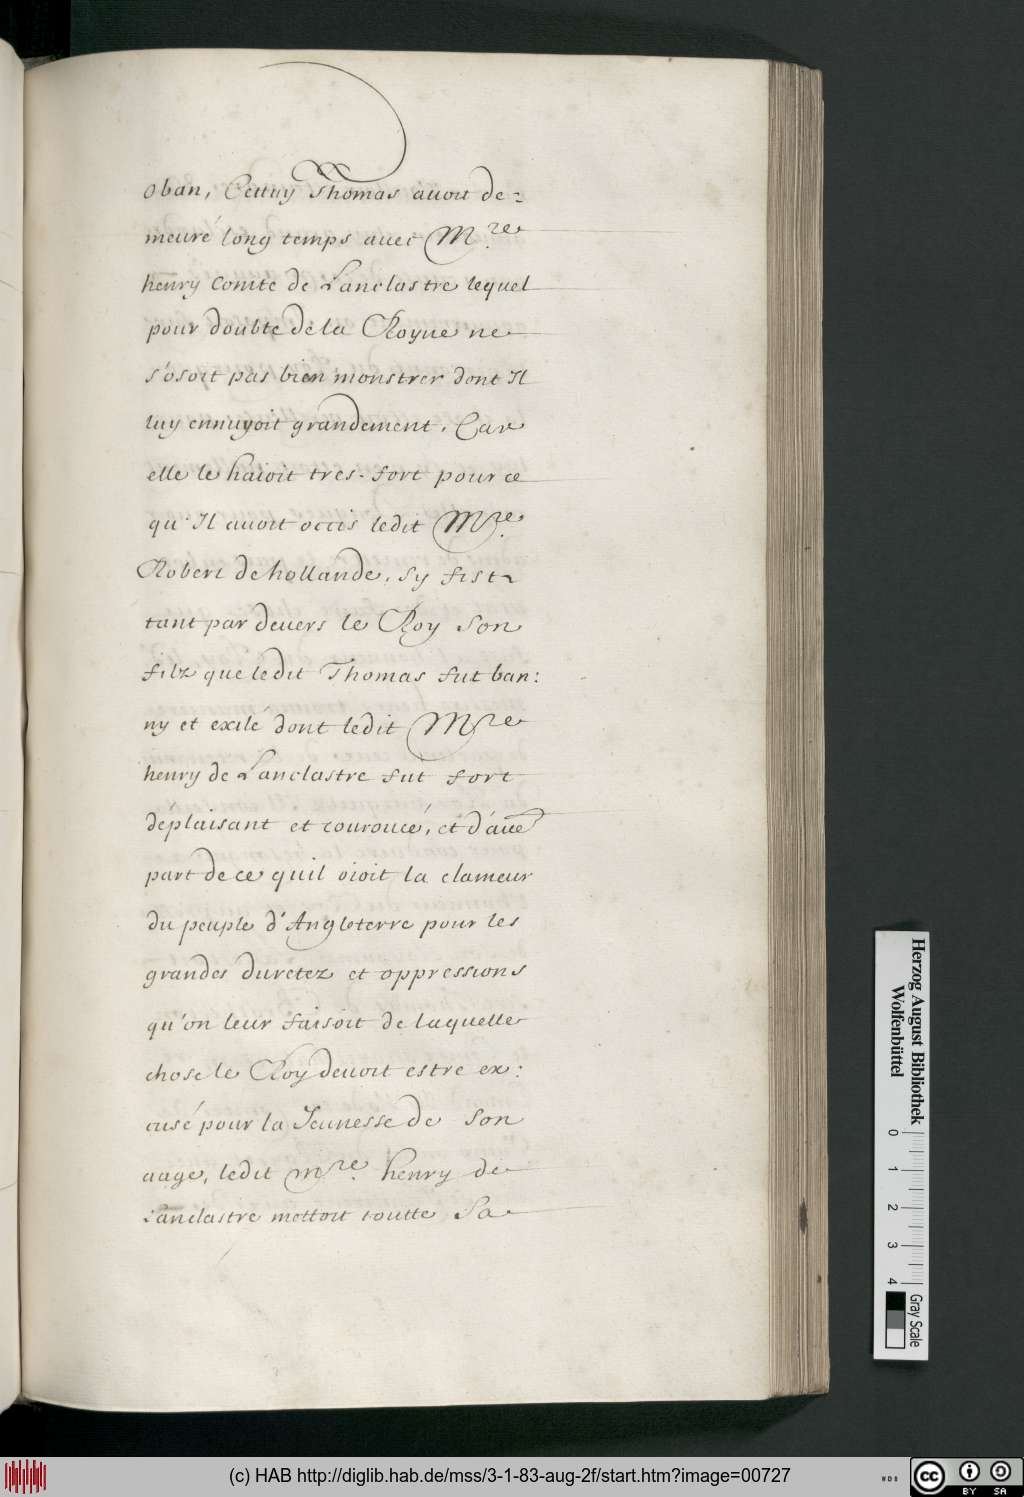 oban, Cettuy Thomas auoit de=
meuré long temps auec Mre.
henry Comte de Lanclastre lequel
pour doubte de la Royne ne
s'osoit pas bien monstrer dont Il
luy ennuyoit grandement. Car
elle le haïoit tres-fort pour ce
qu'Il auoit occis ledit Mre.
Robert de hollande. sy fist
tant par deuers le Roy son
filz que ledit Thomas fut ban:
ny et exilé dont ledit Mre
henry de Lanclastre fut fort
deplaisant et couroucé, et d'aut̃e
part de ce quil oioit la clameur
du peuple d'Angleterre pour les
grandes duretez et oppressions
qu'on leur faisoit de laquelle
chose le Roy deuoit estre ex:
cusé pour la Jeunesse de son
aage, ledit mre. henry de
Lanclastre mettoit toutte sa
Herzog August Bibliothek
Wolfenbüttel
0 1 2 3 4
Gray Scale
(c) HAB http://diglib.hab.de/mss/3-1-83-aug-2f/start.htm?image=00727
WDB
cc
BY SA